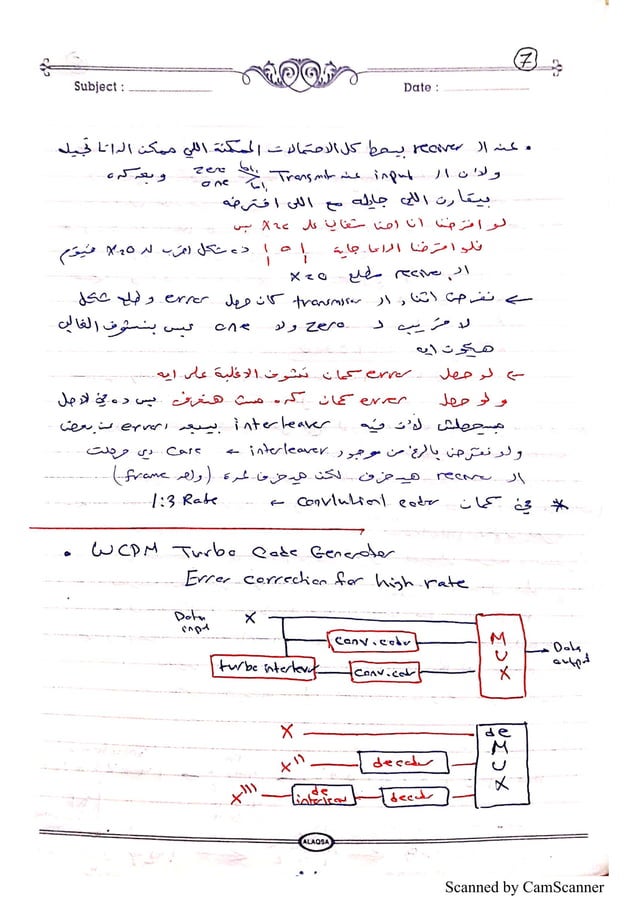 7
Subject :
Date :
• عند الـ reciver بيحط كل الاحتمالات الممكنة اللي ممكن الداتا تجيله
ولان الـ input عند Transmt اما zero اما one وبعد كده
بيقارن اللي جايله مع اللي افترضه
لو افترضنا اننا احنا شغالين على X=0 بس
فلو افترضنا الداتا جاية 1 0 1 ده شكل اقرب لـ X=0 فيقوم
الـ recive مطلع X=0
← نفرض اثناء الـ transmison كان حصل error وطلع شكل
لا قريب لـ zero ولا one بس بنشوف الغالب
هيكون ايه
← لو حصل error كمان نشوف الاغلبة على ايه
ولو حصل error كمان كده مش هنعرف بس ده في الاصل
مبيحصلش لأن فيه interleaver بيبعد error عن بعض
ولو نفترض بالرغم من وجود interleaver ← case دي حصلت
الـ recive هيحرف لكن هيحرف لمرة (واحد frame)
* في كمان convlutionl coder ← 1:3 Rate
• WCDM Turbo Code Generator
Error correction for high rate
Data input X
conv.codr
turbo interlever conv.codr
MUX
Data output
X
X''
decodr
X'''
de interlever decodr
de MUX
ALAQSA
Scanned by CamScanner